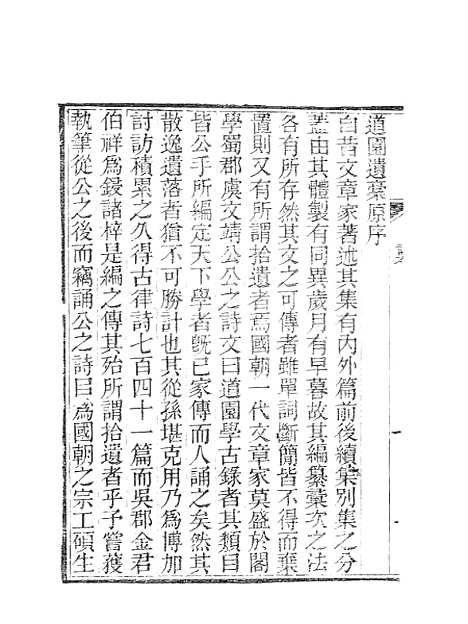 道園遺稾原序
自昔文章家著述其集有內外篇前後續集別集之分
蓋由其體製有同異歲月有早暮故其編纂彙次之法
各有所存然其文之可傳者雖單詞斷簡皆不得而棄
置則又有所謂拾遺者焉國朝一代文章家莫盛於閣
學蜀郡虞文靖公公之詩文曰道園學古錄者其類目
皆公手所編定天下學者旣已家傳而人誦之矣然其
散逸遺落者猶不可勝計也其從孫堪克用乃爲博加
討訪積累之久得古律詩七百四十一篇而吳郡金君
伯祥爲鋟諸梓是編之傳其殆所謂拾遺者乎予嘗獲
執筆從公之後而竊誦公之詩曰爲國朝之宗工碩生